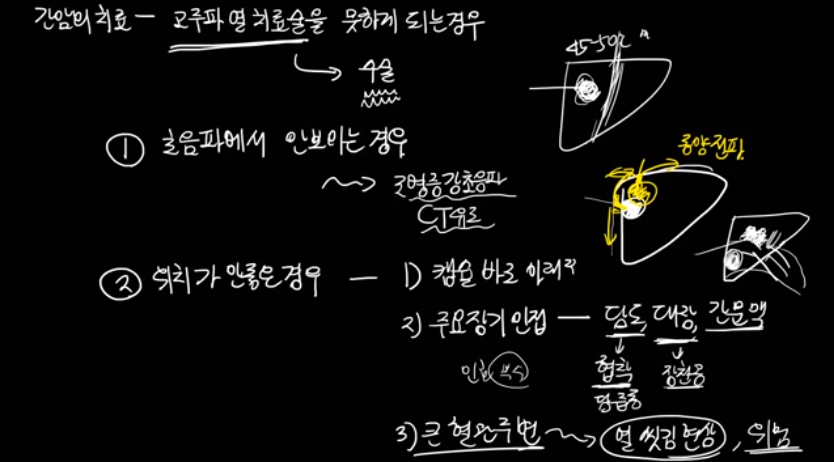 간암의 치료 — 고주파 열 치료술을 못하게 되는 경우
수술
① 초음파에서 안보이는 경우
조영증강초음파
CT유도
종양전파
② 위치가 안좋은경우 — 1) 캡슐 바로 아래
2) 주요장기 인접 — 담도, 대장, 간문맥
협착 장천공
3) 큰 혈관주변 열 씻김 현상, 위험